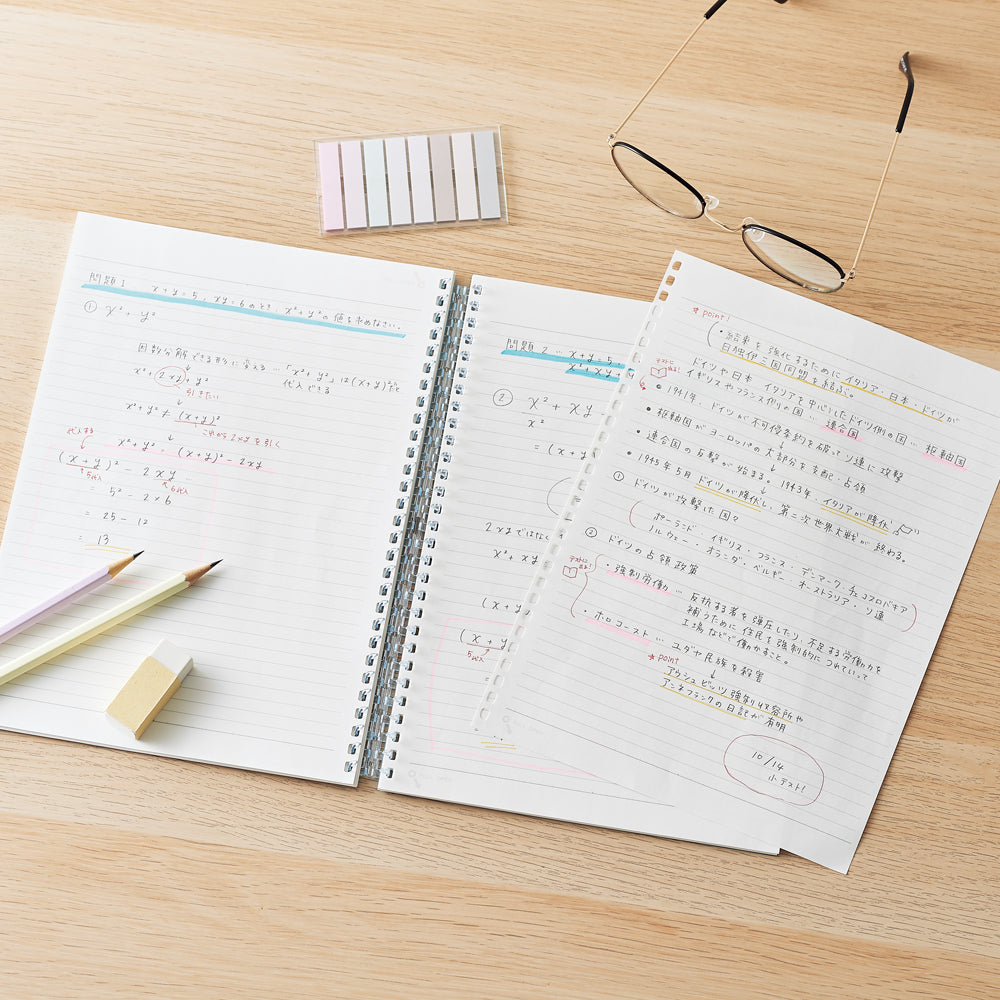 問題1 … x+y=5, xy=6のとき, x²+y²の値を求めなさい。
① x²+y²
因数分解できる形に変える…「x²+y²」は(x+y)
代入できる
x²+2xy+y²
引きたい
x²+y² ≠ (x+y)²
これから2xyを引く
代入する
x²+y² = (x+y)² - 2xy
(x+y)² - 2xy
5代入
6代入
= 5² - 2×6
= 25 - 12
= 13
問題2 … x+y=5.
x²+xy+
② x²+xy
x²
= (x+y
2xyではなく
x²+xy
(x+y
(x+y
5代入
* point!
・結束を強化するためにイタリア・日本・ドイツが
日独伊三国同盟を結ぶ。
テストに出る!
ドイツや日本 イタリアを中心としたドイツ側の国… 枢軸国
イギリスやフランス側の国… 連合国
• 1941年. ドイツが不可侵条約を破ってソ連に攻撃
• 枢軸国がヨーロッパの大部分を支配・占領
• 連合国の反撃が始まる。1943年. イタリアが降伏
• 1945年5月 ドイツが降伏し, 第二次世界大戦が終わる。
① ドイツが攻撃した国々
ポーランド イギリス・フランス・デンマーク・チェコスロバキア
ノルウェー・オランダ・ベルギー・オーストラリア・ソ連
② ドイツの占領政策
テストに出る!
・強制労働… 反抗する者を弾圧したり, 不足する労働力を
補うために住民を強制的につれていって
工場などで働かすこと。
・ホロコースト… ユダヤ民族を殺害
* point
アウシュビッツ強制収容所や
アンネフランクの日記が有明
10/14
小テスト!